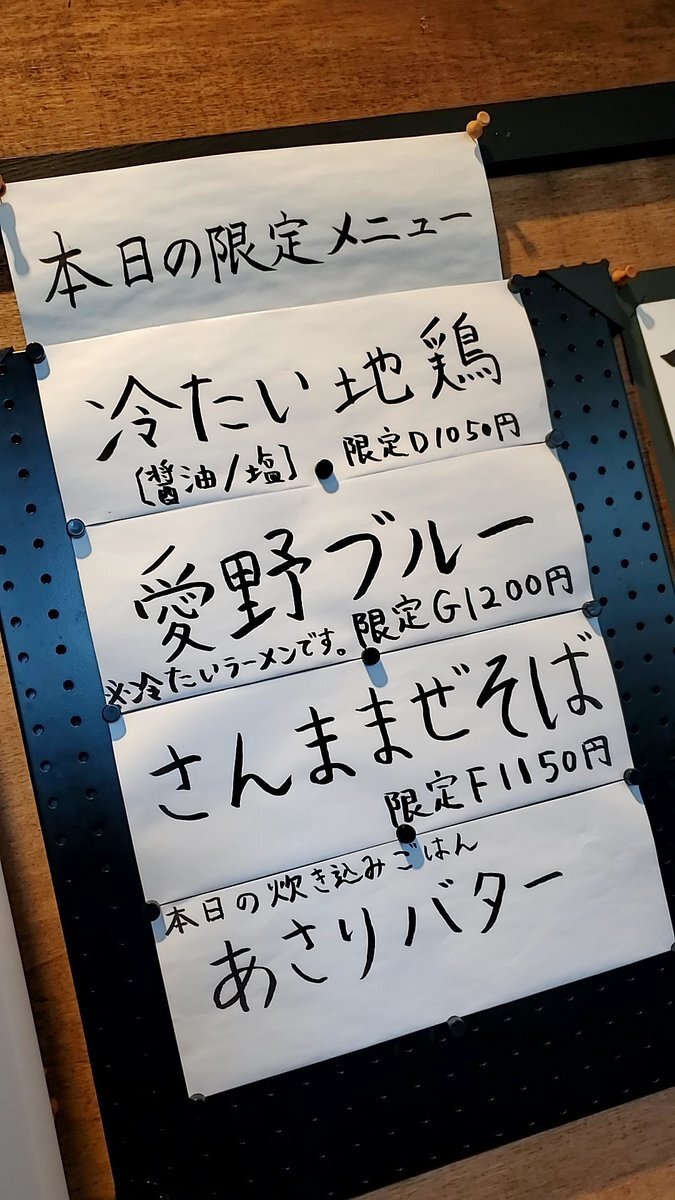 本日の限定メニュー
冷たい地鶏
[醤油/塩] 限定D1050円
愛野ブルー
限定G1200円
※冷たいラーメンです。
さんままぜそば
限定F1150円
本日の炊き込みごはん
あさりバター